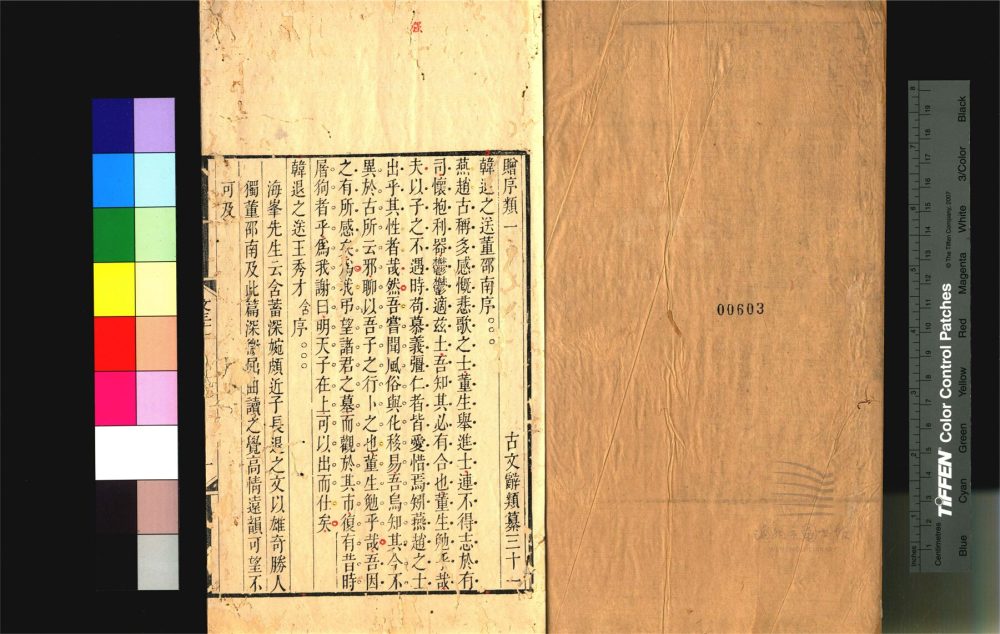 贈序類一　古文辭類纂三十一
韓退之送董邵南序。。。
燕趙古稱多感慨悲歌之士董生舉進士連不得志於有
司懷抱利器鬱鬱適茲土吾知其必有合也董生勉乎哉
夫以子之不遇時苟慕義彊仁者皆愛惜焉矧燕趙之士
出乎其性者哉然吾嘗聞風俗與化移易吾烏知其今不
異於古所云邪聊以吾子之行卜之也董生勉乎哉吾因
之有所感矣爲我弔望諸君之墓而觀於其市復有昔時
屠狗者乎爲我謝曰明天子在上可以出而仕矣
韓退之送王秀才含序。。。
海峯先生云含蓄深婉頗近子長退之文以雄奇勝人
獨董邵南及此篇深微屈曲讀之覺高情遠韻可望不
可及
00603
TIFFEN Color Control Patches
© The Tiffen Company, 2007
Inches
Centimetres
Blue Cyan Green Yellow Red Magenta White 3/Color Black